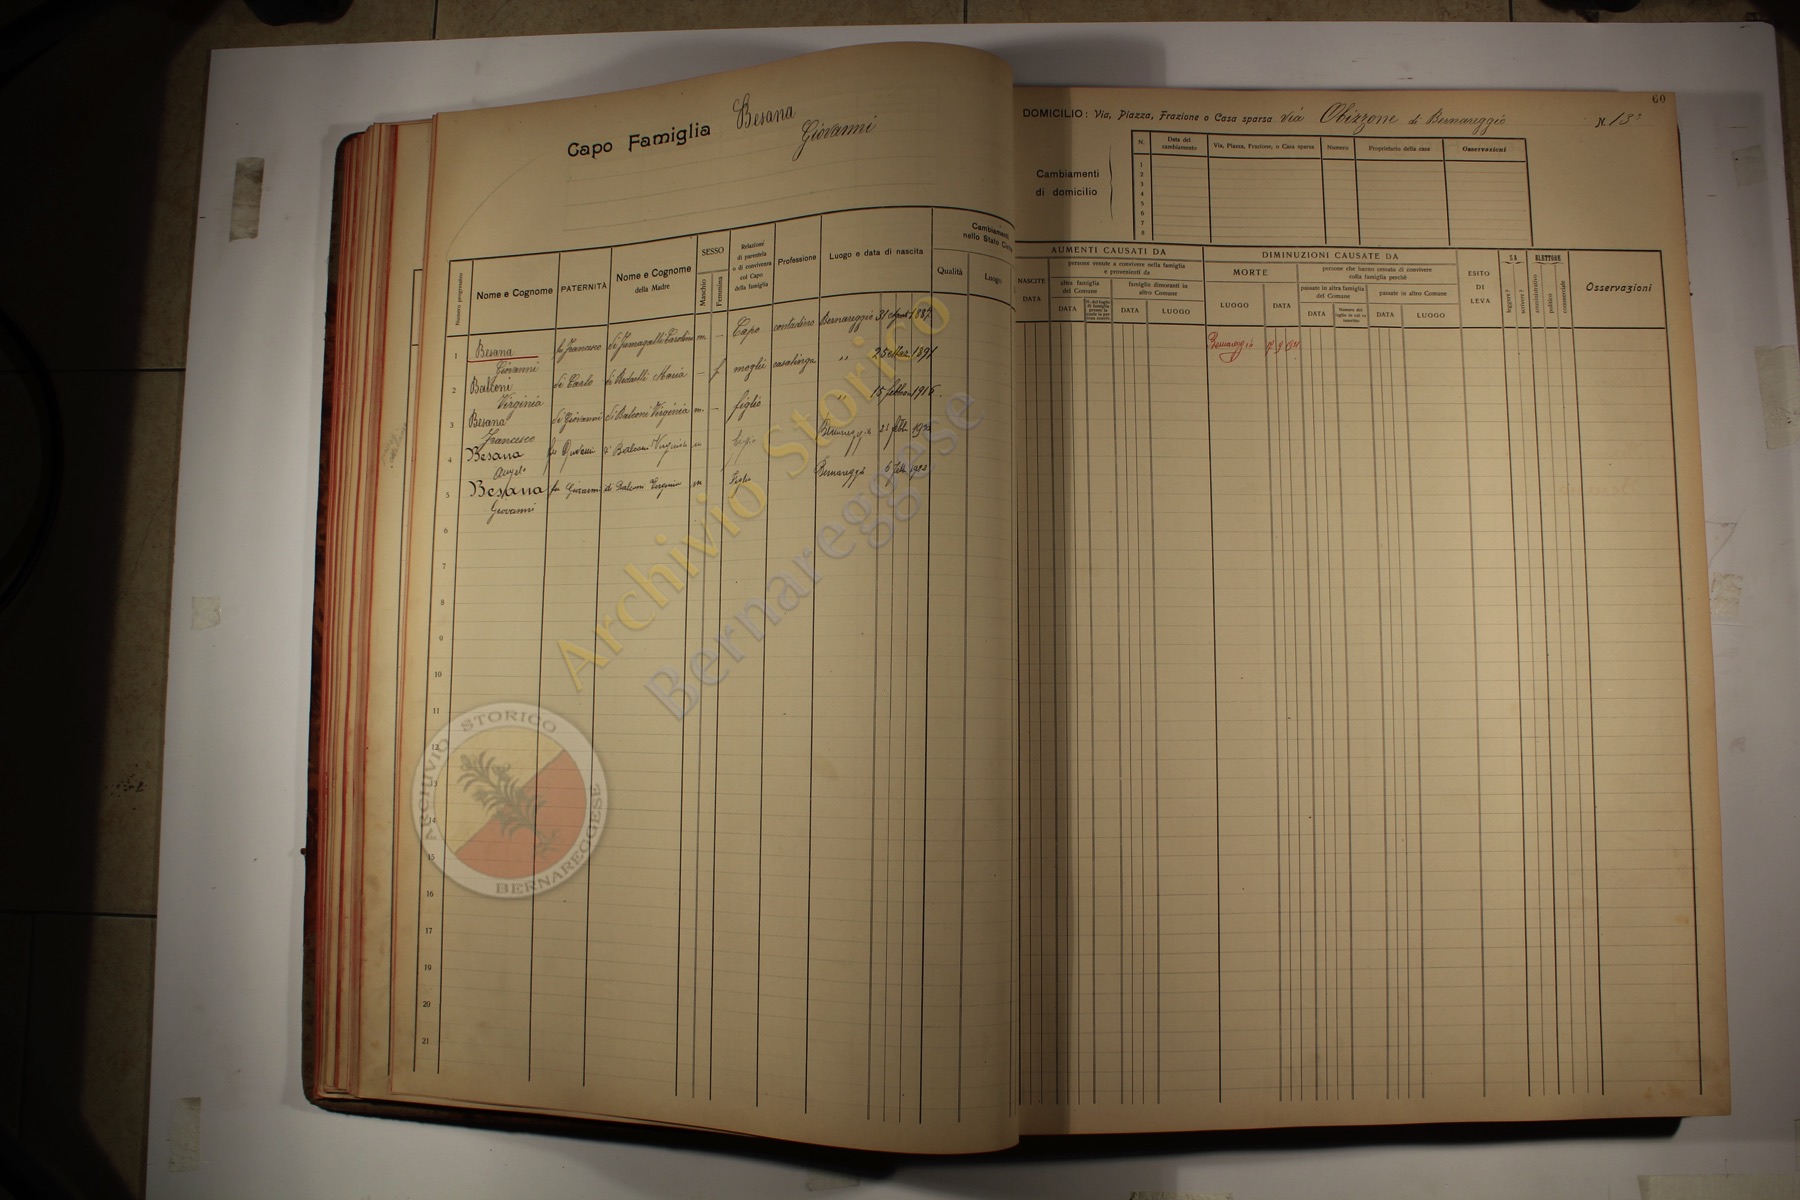 Capo Famiglia Besana
Giovanni
Numero progressivo
Nome e Cognome
PATERNITÀ
Nome e Cognome
della Madre
SESSO
Maschio
Femmina
Relazioni
di parentela
o di convivenza
col Capo
della famiglia
Professione
Luogo e data di nascita
Cambiamenti
nello Stato Civile
Qualità
Luogo
1 Besana fu Francesco di Fumagalli m - Capo contadino Bernareggio 31 1887
Giovanni
2 Balconi di Carlo di Maria - f moglie casalinga " 25 1891
Virginia
3 Besana di Giovanni di Balconi Virginia m - figlio " 15 1916
Francesco
4 Besana fu Giovanni di Balconi m Bernareggio 21
Angelo
5 Besana fu Giovanni di Balconi Virginia m figlio Bernareggio 6
Giovanni
6
7
8
9
10
11
12
13
14
15
16
17
18
19
20
21
60
DOMICILIO: Via, Piazza, Frazione o Casa sparsa Via Obizzone di Bernareggio N. 13
Cambiamenti
di domicilio
N.
Data del
cambiamento
Via, Piazza, Frazione, o Casa sparsa
Numero
Proprietario della casa
Osservazioni
1
2
3
4
5
6
7
8
AUMENTI CAUSATI DA
NASCITE
DATA
persone venute a convivere nella famiglia
e provenienti da
altra famiglia
del Comune
famiglie dimoranti in
altro Comune
DATA
DATA
LUOGO
DIMINUZIONI CAUSATE DA
MORTE
LUOGO
DATA
persone che hanno cessato di convivere
colla famiglia perchè
passate in altra famiglia
del Comune
passate in altro Comune
DATA
DATA
LUOGO
ESITO
DI
LEVA
SA
leggere?
scrivere?
ELETTORE
amministrativo
politico
commerciale
Osservazioni
Bernareggio
Archivio Storico
Bernareggese
ARCHIVIO STORICO
BERNAREGGESE